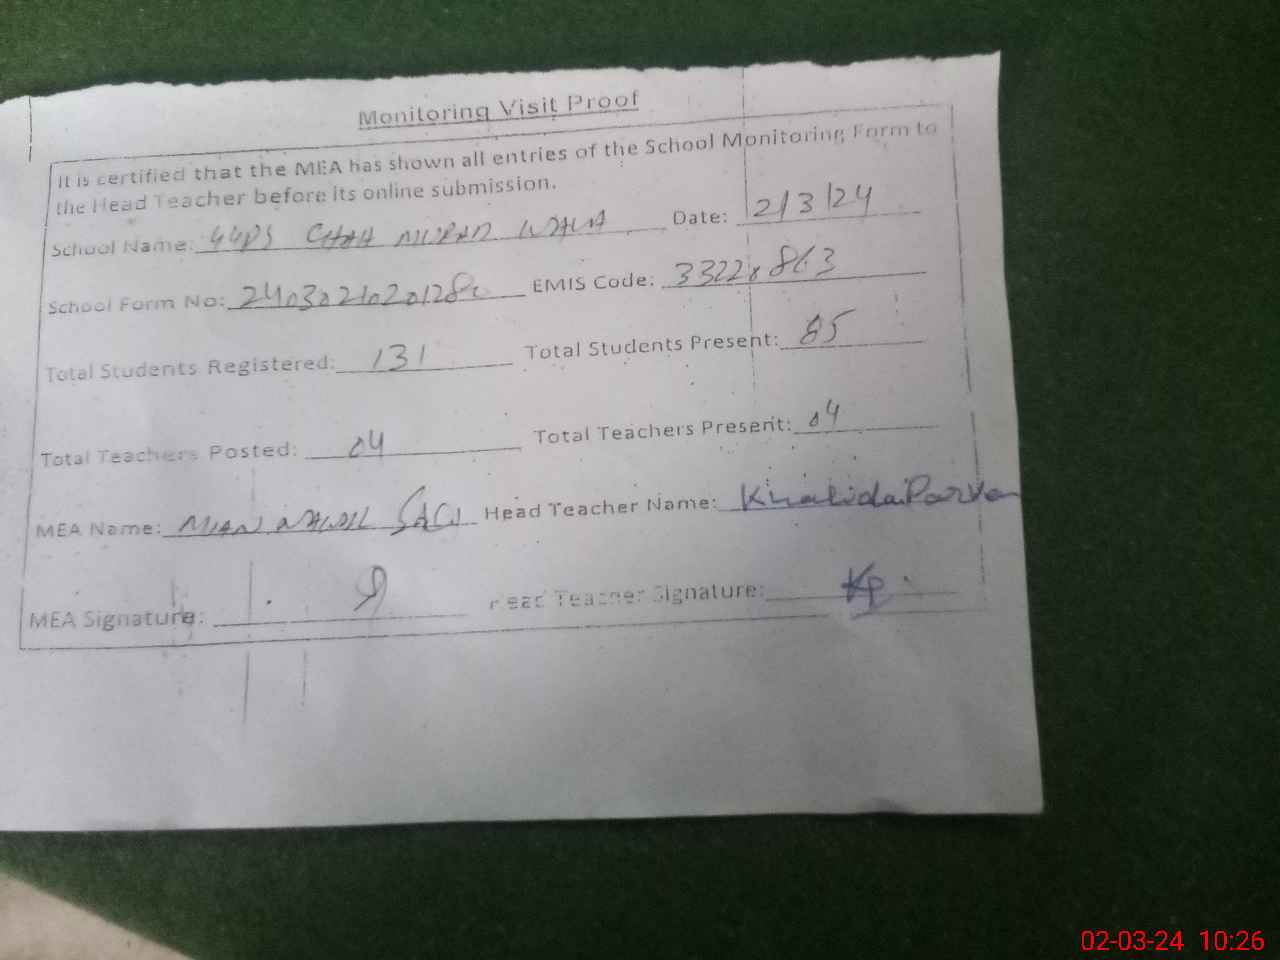 Monitoring Visit Proof
It is certified that the MEA has shown all entries of the School Monitoring Form to
the Head Teacher before its online submission.
School Name: GGPS CHAH MURAD WALA Date: 2/3/24
School Form No: EMIS Code:
Total Students Registered: 131 Total Students Present: 85
Total Teachers Posted: 04 Total Teachers Present: 04
MEA Name: MIAN Head Teacher Name: Khalida Parven
MEA Signature: Head Teacher Signature: KP
02-03-24 10:26